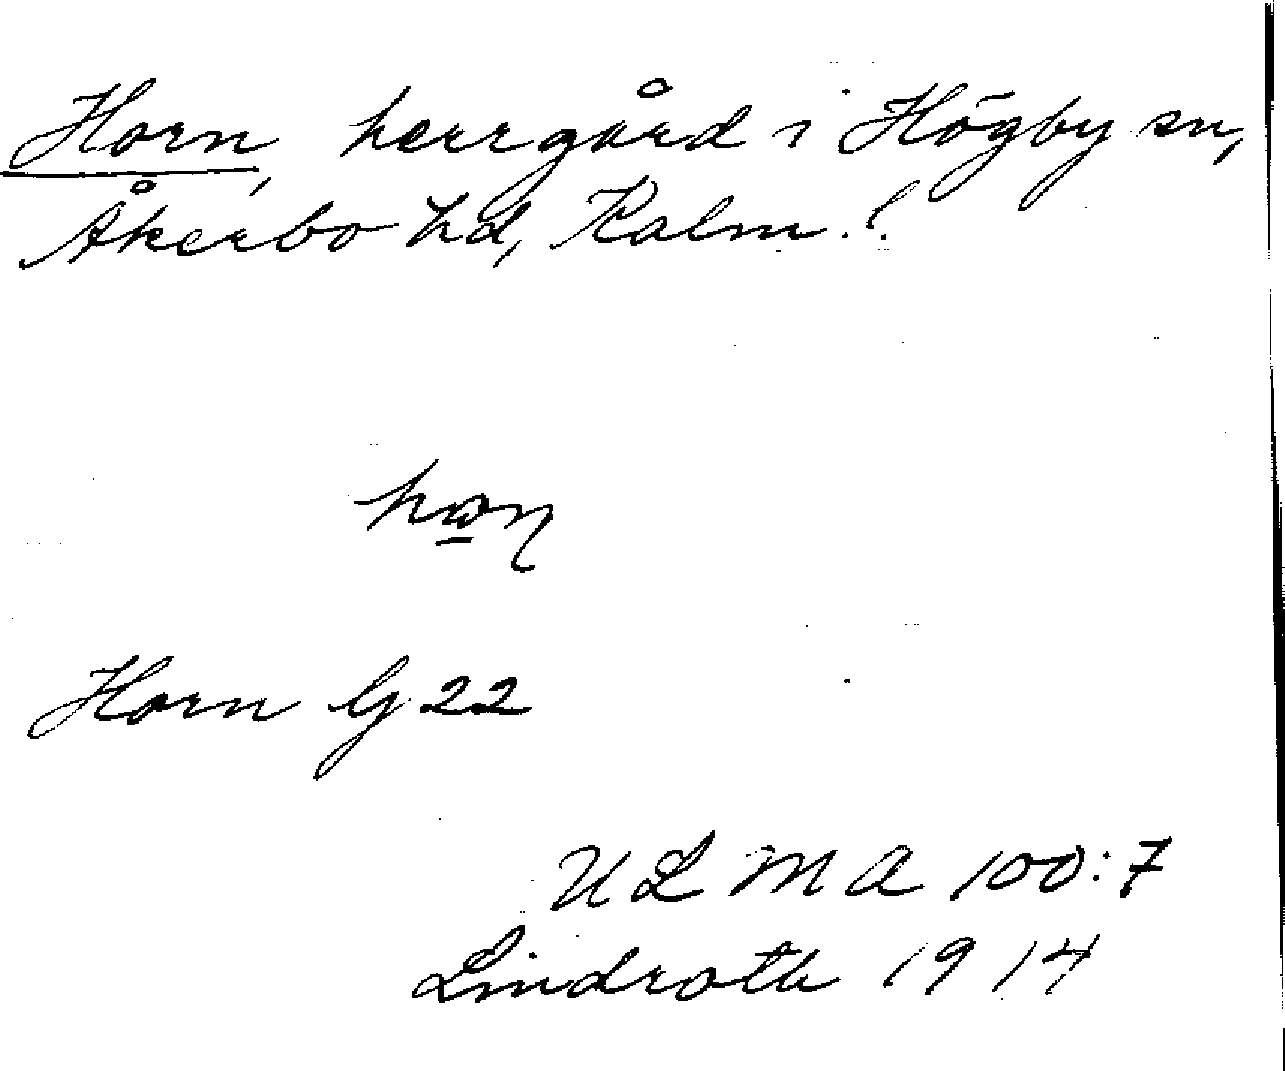 Horn, herrgård i Högby sn,
Åkerbo hd, Kalm. l.
Horn G 22
ULMA 100:7
Lindroth 1914